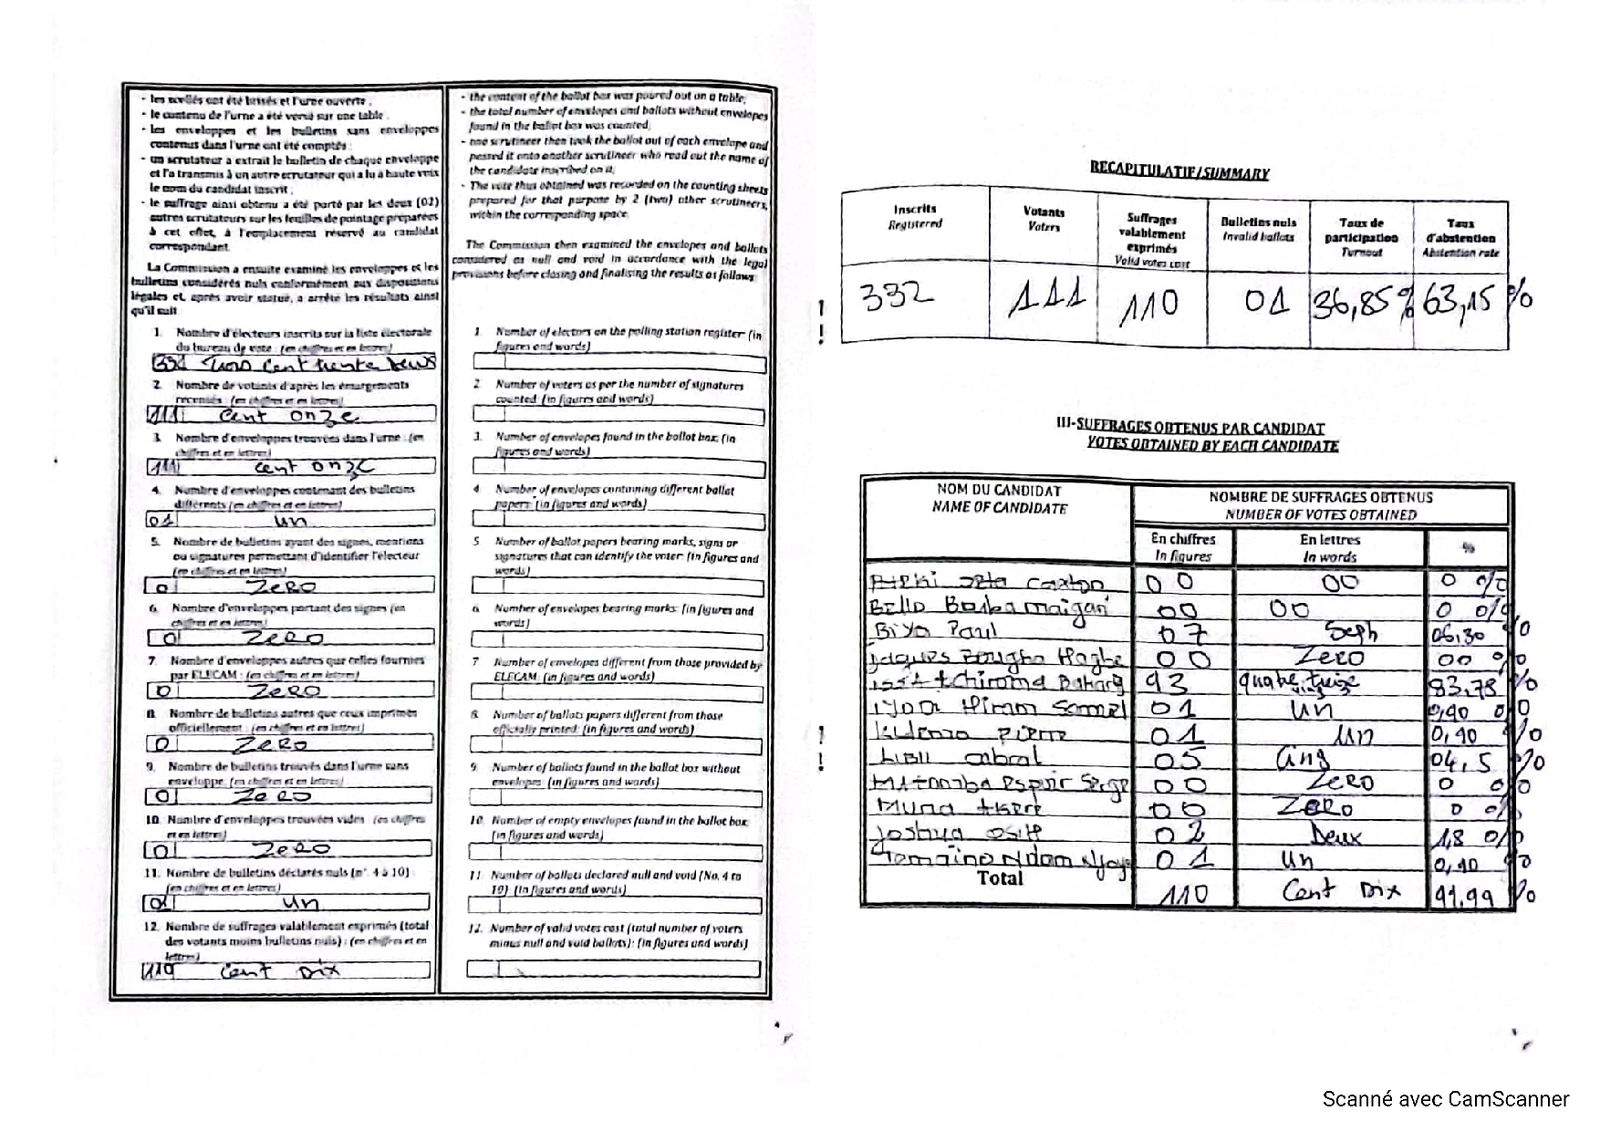 - les scellés ont été brisés et l'urne ouverte ;
- le contenu de l'urne a été versé sur une table ;
- les enveloppes et les bulletins sans enveloppes
contenus dans l'urne ont été comptés ;
- un scrutateur a extrait le bulletin de chaque enveloppe
et l'a transmis à un autre scrutateur qui a lu à haute voix
le nom du candidat inscrit ;
- le suffrage ainsi obtenu a été porté par les deux (02)
autres scrutateurs sur les feuilles de pointage préparées
à cet effet, à l'emplacement réservé au candidat
correspondant.
La Commission a ensuite examiné les enveloppes et les
bulletins considérés nuls conformément aux dispositions
légales et, après avoir statué, a arrêté les résultats ainsi
qu'il suit
1. Nombre d'électeurs inscrits sur la liste électorale
du bureau de vote : (en chiffres et en lettres)
332 Trois cent trente deux
2. Nombre de votants d'après les émargements
recensés : (en chiffres et en lettres)
111 cent onze
3. Nombre d'enveloppes trouvées dans l'urne : (en
chiffres et en lettres)
111 cent onze
4. Nombre d'enveloppes contenant des bulletins
différents (en chiffres et en lettres)
01 un
5. Nombre de bulletins ayant des signes, mentions
ou signatures permettant d'identifier l'électeur
(en chiffres et en lettres)
0 Zero
6. Nombre d'enveloppes portant des signes (en
chiffres et en lettres)
0 Zero
7. Nombre d'enveloppes autres que celles fournies
par ELECAM : (en chiffres et en lettres)
0 Zero
8. Nombre de bulletins autres que ceux imprimés
officiellement : (en chiffres et en lettres)
0 Zero
9. Nombre de bulletins trouvés dans l'urne sans
enveloppe (en chiffres et en lettres)
0 Zero
10. Nombre d'enveloppes trouvées vides (en chiffres
et en lettres)
0 Zero
11. Nombre de bulletins déclarés nuls (n°. 4 à 10) :
(en chiffres et en lettres)
01 un
12. Nombre de suffrages valablement exprimés (total
des votants moins bulletins nuls) : (en chiffres et en
lettres)
110 cent Dix
- the content of the ballot box was poured out on a table;
- the total number of envelopes and ballots without envelopes
found in the ballot box was counted;
- one scrutineer then took the ballot out of each envelope and
passed it onto another scrutineer who read out the name of
the candidate inscribed on it;
- The vote thus obtained was recorded on the counting sheets
prepared for that purpose by 2 (two) other scrutineers,
within the corresponding space.
The Commission then examined the envelopes and ballots
considered as null and void in accordance with the legal
provisions before closing and finalising the results as follows
1 Number of electors on the polling station register: (in
figures and words)
2 Number of voters as per the number of signatures
counted: (in figures and words)
3. Number of envelopes found in the ballot box: (in
figures and words)
4 Number of envelopes containing different ballot
papers: (in figures and words)
5 Number of ballot papers bearing marks, signs or
signatures that can identify the voter: (in figures and
words)
6 Number of envelopes bearing marks: (in figures and
words)
7 Number of envelopes different from those provided by
ELECAM: (in figures and words)
8. Number of ballots papers different from those
officially printed: (in figures and words)
9. Number of ballots found in the ballot box without
envelopes (in figures and words)
10. Number of empty envelopes found in the ballot box
(in figures and words)
11 Number of ballots declared null and void (No. 4 to
10) (In figures and words)
12. Number of valid votes cast (total number of voters
minus null and void ballots): (in figures and words)
RECAPITULATIF/SUMMARY
Inscrits Registered Votants Voters Suffrages valablement exprimés Valid votes cast Bulletins nuls Invalid ballots Taux de participation Turnout Taux d'abstention Abstention rate
332 111 110 01 36,85% 63,15%
III-SUFFRAGES OBTENUS PAR CANDIDAT
VOTES OBTAINED BY EACH CANDIDATE
NOM DU CANDIDAT
NAME OF CANDIDATE
NOMBRE DE SUFFRAGES OBTENUS
NUMBER OF VOTES OBTAINED
En chiffres En lettres %
In figures In words
Caxton 00 00 0 %
Bello Bouba maigari 00 00 0 0/0
Biya Paul 07 Seph 06,30 %
Jaques Bougha Hagbe 00 Zero 00 %
Issa tchiroma Bakary 93 quatre vingt treize 83,78 %
Iyodi Hiram Samuel 01 un 0,90 0/0
Kwemo Pierre 01 un 0,90 %
Libii cabral 05 Cinq 04,5 %
Matomba Espoir Serge 00 Zero 0 0/0
Muna Akere 00 Zero 0 %
Joshua Osih 02 Deux 1,8 0/0
Tomaino Ndam Njoya 01 un 0,90 %
Total 110 Cent Dix 99,99 %
Scanné avec CamScanner